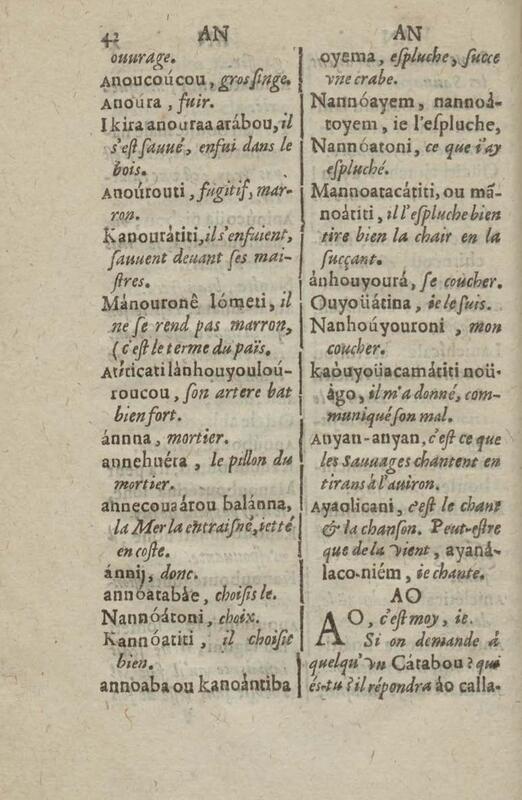 42 AN AN
ouurage.
Anoucoúcou, gros singe.
Anoura, fuir.
Ikira anouraa arábou, il
s'est sauué, enfui dans le
bois.
Anoúrouti, fugitif, mar-
ron.
Kanourátiti, il s'enfuient,
sauuent deuant ses mai-
stres.
Mánouronê lómeti, il
ne se rend pas marron,
(c'est le terme du païs.
Atíricati lànhouyouloú-
roucou, son artere bat
bien fort.
ánnna, mortier.
annehuéra, le pillon du
mortier.
annecouaárou balánna,
la Mer la entraisné, ietté
en coste.
ánnij, donc.
annoátabáe, choisis le.
Nannóátoni, choix.
Kannóatiti, il choisit
bien.
annoaba ou kanoántiba
oyema, espluche, succe
vne crabe.
Nannóayem, nannoá-
toyem, ie l'espluche,
Nannóatoni, ce que i'ay
espluché.
Mannoatacátiti, ou mã-
noátiti, il l'espluche bien
tire bien la chair en la
sucçant.
ánhouyourá, se coucher.
Ouyoüátina, ie le suis.
Nanhoúyouroni, mon
coucher.
kaòuyoüacamátiti noü-
ágo, il m'a donné, com-
muniqué son mal.
Anyan-anyan, c'est ce que
les Sauuages chantent en
tirans à l'auiron.
Ayaolicani, c'est le chant
& la chanson. Peut-estre
que de la vient, ayaná-
laco-niém, ie chante.
AO
AO, c'est moy, ie.
Si on demande à
quelqu'vn Cátabou? qui
és-tu? il répondra áo calla-